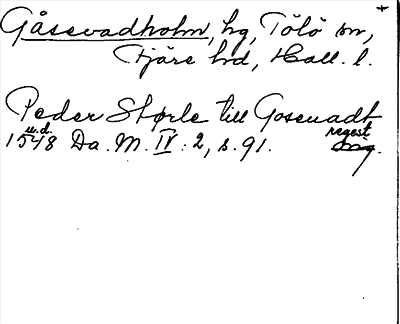 Gåssvadholm, hg, Tölö sn,
Fjäre hd, Hall. l.
Peder Størle till Gosevadt
u.d. regest
1548 Da. M. IV: 2, s. 91. orig.